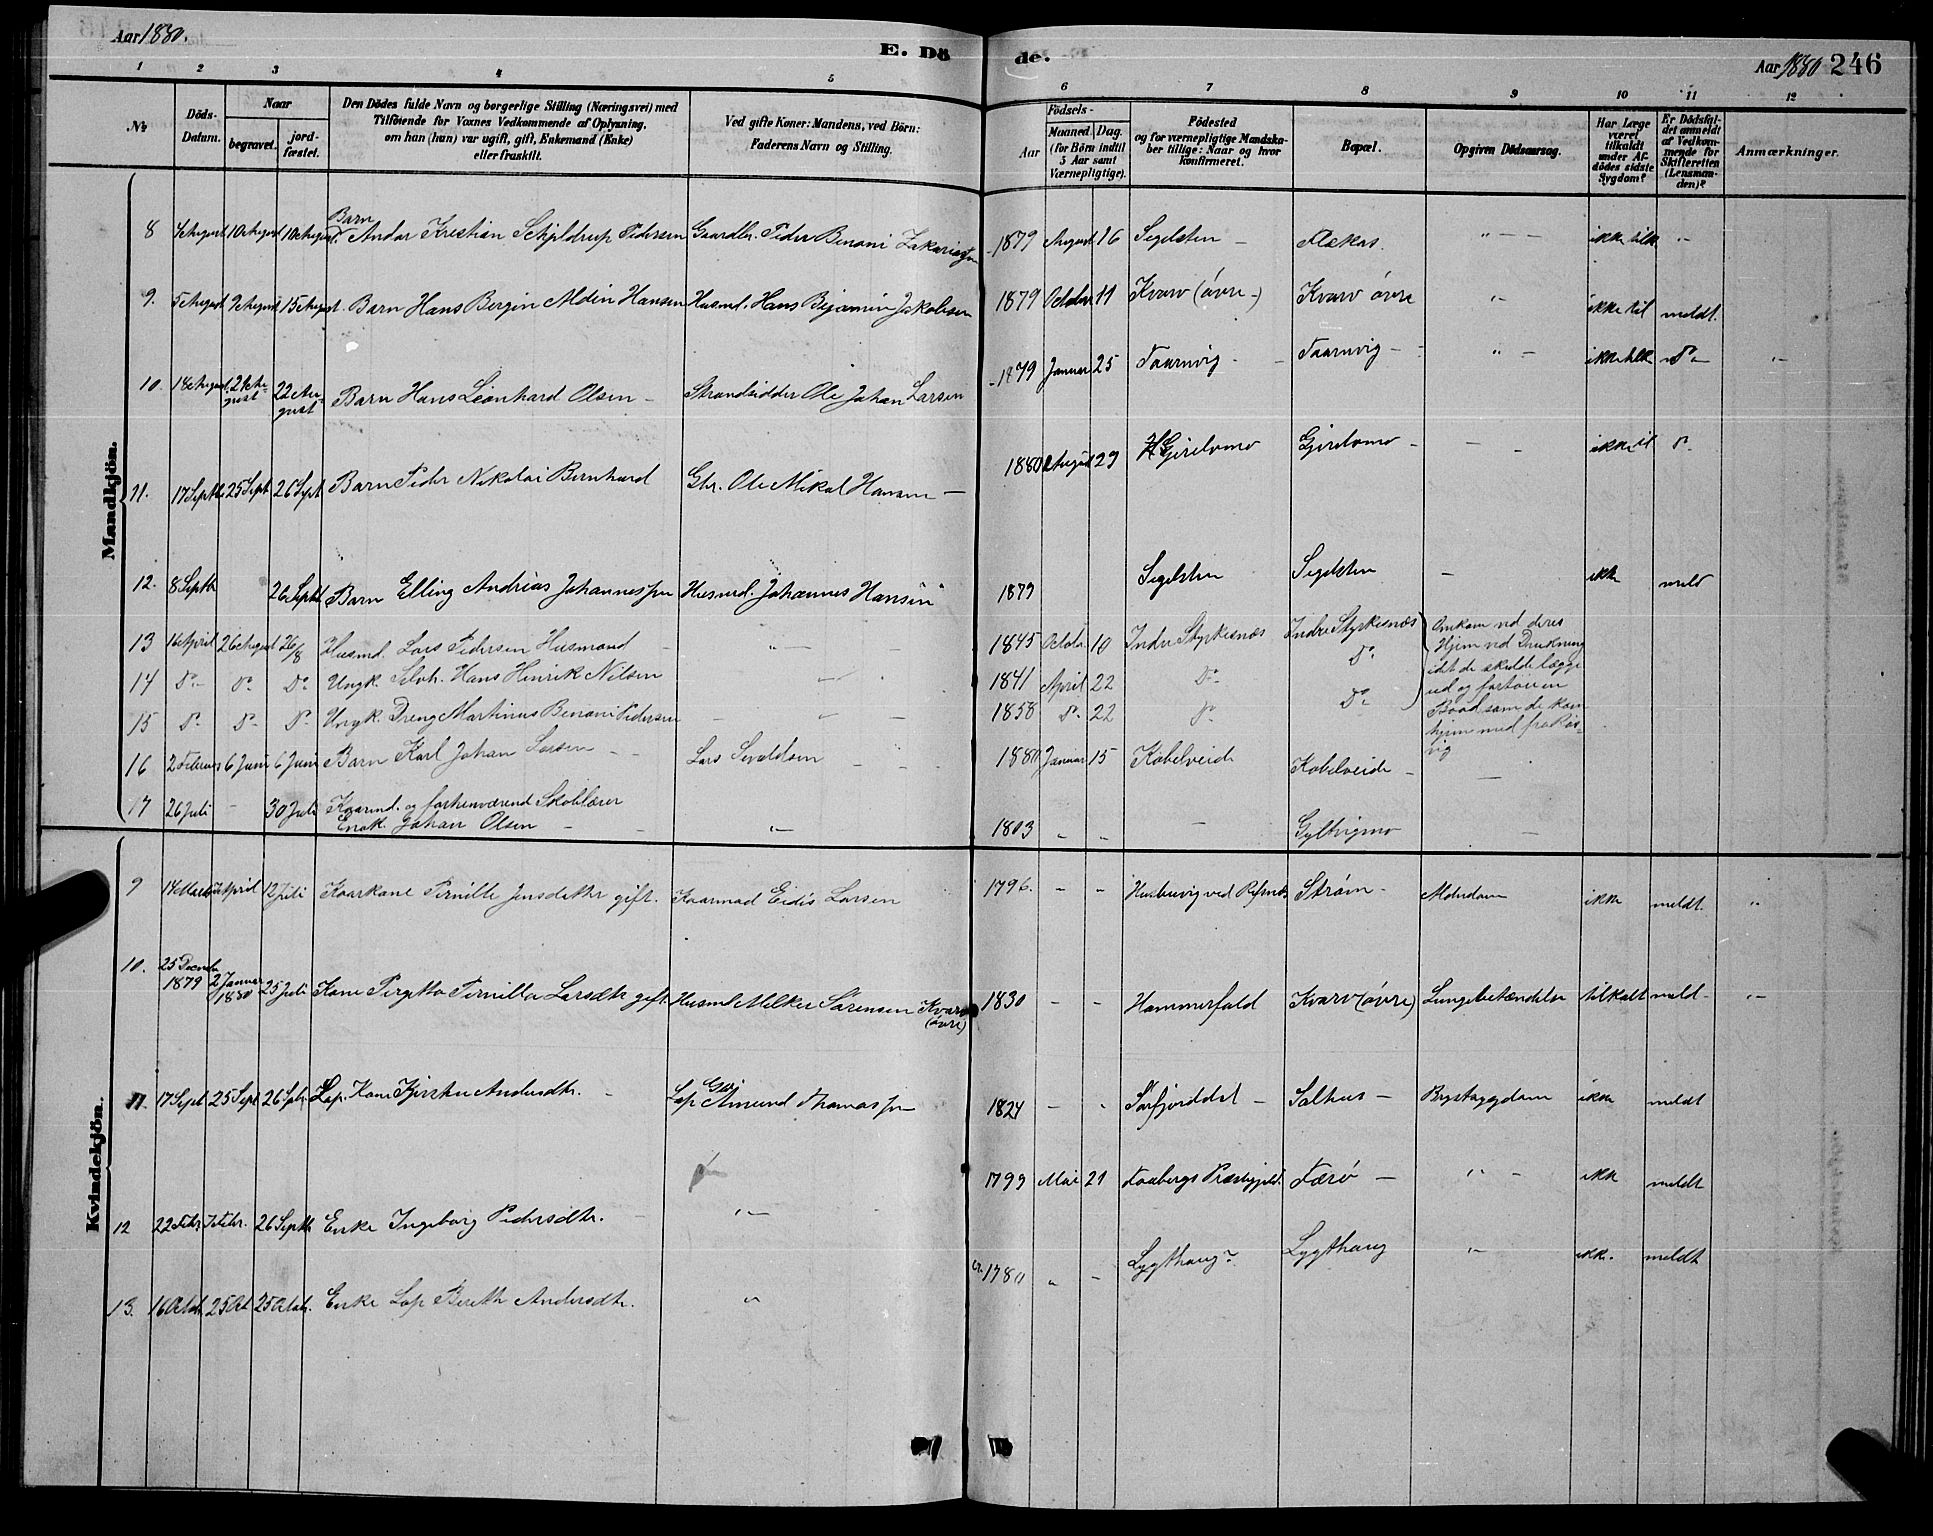 Aar 1880.
E. Dö de.
Aar 1880 246
1 2 3 4 5 6 7 8 9 10 11 12
№
Döds-Datum.
Naar
begravet.
jord-fæstet.
Den Dödes fulde Navn og borgerlige Stilling (Næringsvei) med
Tilföiende for Voxnes Vedkommende af Oplysning,
om han (hun) var ugift, gift, Enkemand (Enke)
eller fraskilt.
Ved gifte Koner: Mandens, ved Börn:
Faderens Navn og Stilling.
Födsels-
Aar
Maaned. Dag.
(for Börn indtil
5 Aar samt
Værnepligtige).
Födested
og for værnepligtige Mandska-
ber tillige: Naar og hvor
konfirmeret.
Bopæl.
Opgiven Dödsaarsag.
Har Læge
været
tilkaldt
under Af-
dödes sidste
Sygdom?
Er Dödsfal-
det anmeldt
af Vedkom-
mende for
Skifteretten
(Lensman-
den)?
Anmærkninger.
Mandkjön.
8 4 August 10 August 10 August Barn Andor Kristian Schjeldrup Pedersen Gaardbr. Peder Benoni Zakariassen 1879 August 16 Segelsten - ikke tilk
9. 5 August 9 August 15 August. Barn Hans Bergin Aldin Hansen Husmd. Hans Bejamin Jakobsen 1879 October 11 Kvarv (övre -) Kvarv övre ikke til meldt.
10. 18 August 21 August 22 August Barn Hans Leonhard Olsen - Strandsidder Ole Johan Larsen 1879 Januar 25 Taarnvig - Taarnvig - ikke tilk do
11. 17 Septb 25 Sept 26 Sept Barn Peder Nikolai Bernhard Gbr. Ole Mikal Hansen - 1880 August 29 Gjerelvmo Gjerelvmo - ikke til do
12. 8 Septb 26 Septb Barn Elling Andrias Johannessen Husmd. Johannes Hansen 1879 Segelsten Segelsten - ikke meld
13 16 April 26 August 26/8 Husmd. Lars Pedersen Husmand 1845 Octobr 10 Indre Styrkesnæs Indre Styrkesnæs Omkom ved deres
Hjem ved Drukning
idet de skulde lægge
ud og fortöie en
Baad som de kom
hjem med fra Røs-
vig
14 do do do Ungk. Selvh. Hans Henrik Nilsen 1841 April 22 do do
15 do do do Ungk. Dreng Martinus Benoni Pedersen 1858 do 22 do do
16 2 Februar 6 Juni 6 Juni Barn Karl Johan Larsen Lars Sivaldsen 1880 Januar 15 Kobelveide Kobelveide -
17 26 Juli - 30 Juli Kaarmd. og forhenværend Skolelærer
Enok. Johan Olsen - 1803 Gyltvigmo
Kvindekjön.
9 14 Marts April 12 Juli Kaarkone Pernille Jensdatter gift. Kaarmad Eidis Larsen 1796. - - Strøm - Alderdom ikke meldt.
10. 25 Decemb 1879 2 Januar 1880 25 Juli Kone Pirgitta Pernilla Larsdtr gift. Husmd Melker Sörensen Kvarv (övre) 1830 - - Hammerfald Kvarv (övre) Lungebetændelse tilkalt meld -
11. 17 Sept 25 Sept 26 Sptr Lap. Kone Kjirsten Andersdtr. - Lap Gbr Amund Thomassen 1824 - Sørfjorddal - Salhus - Brystsygdom ikke meldt
12 22 Febr. 7 Febr. 26 Septb Enke Ingeborg Pedersdtr. 1799 Mai 21 Faabergs Præstegjeld. Færö - ikke meldt
13. 16 Octob 25 Oct 25 Octobr. Enke Lap Bereth Andersdtr. ca. 1780 Lygthaug? Lygthaug ikke. meldt